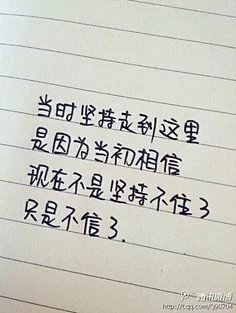 当时坚持走到这里
是因为当初相信
现在不是坚持不住了
只是不信了.
腾讯微博